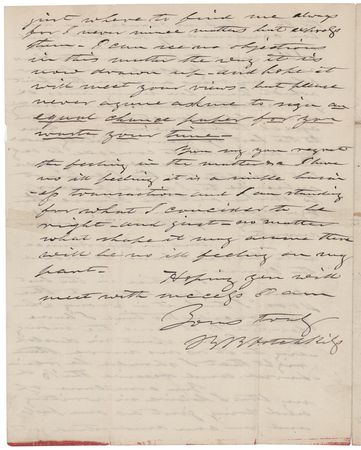 just where to find me always
for I never mince matters but express
them - I can see no objections
in this matter the way it is
now drawn up - and hope it
will meet your views - but please
never again ask me to sign an
equal change paper for you
waste your time -
You say you regret
the feeling in the matter & I have
no ill feeling it is a simple busin-
ess transaction and I am standing
for what I concider to be
right and just - no matter
what shape it may assume there
will be no ill feeling on my
part - Hoping you will
meet with success I am
Yours truly
B B Hotchkiss